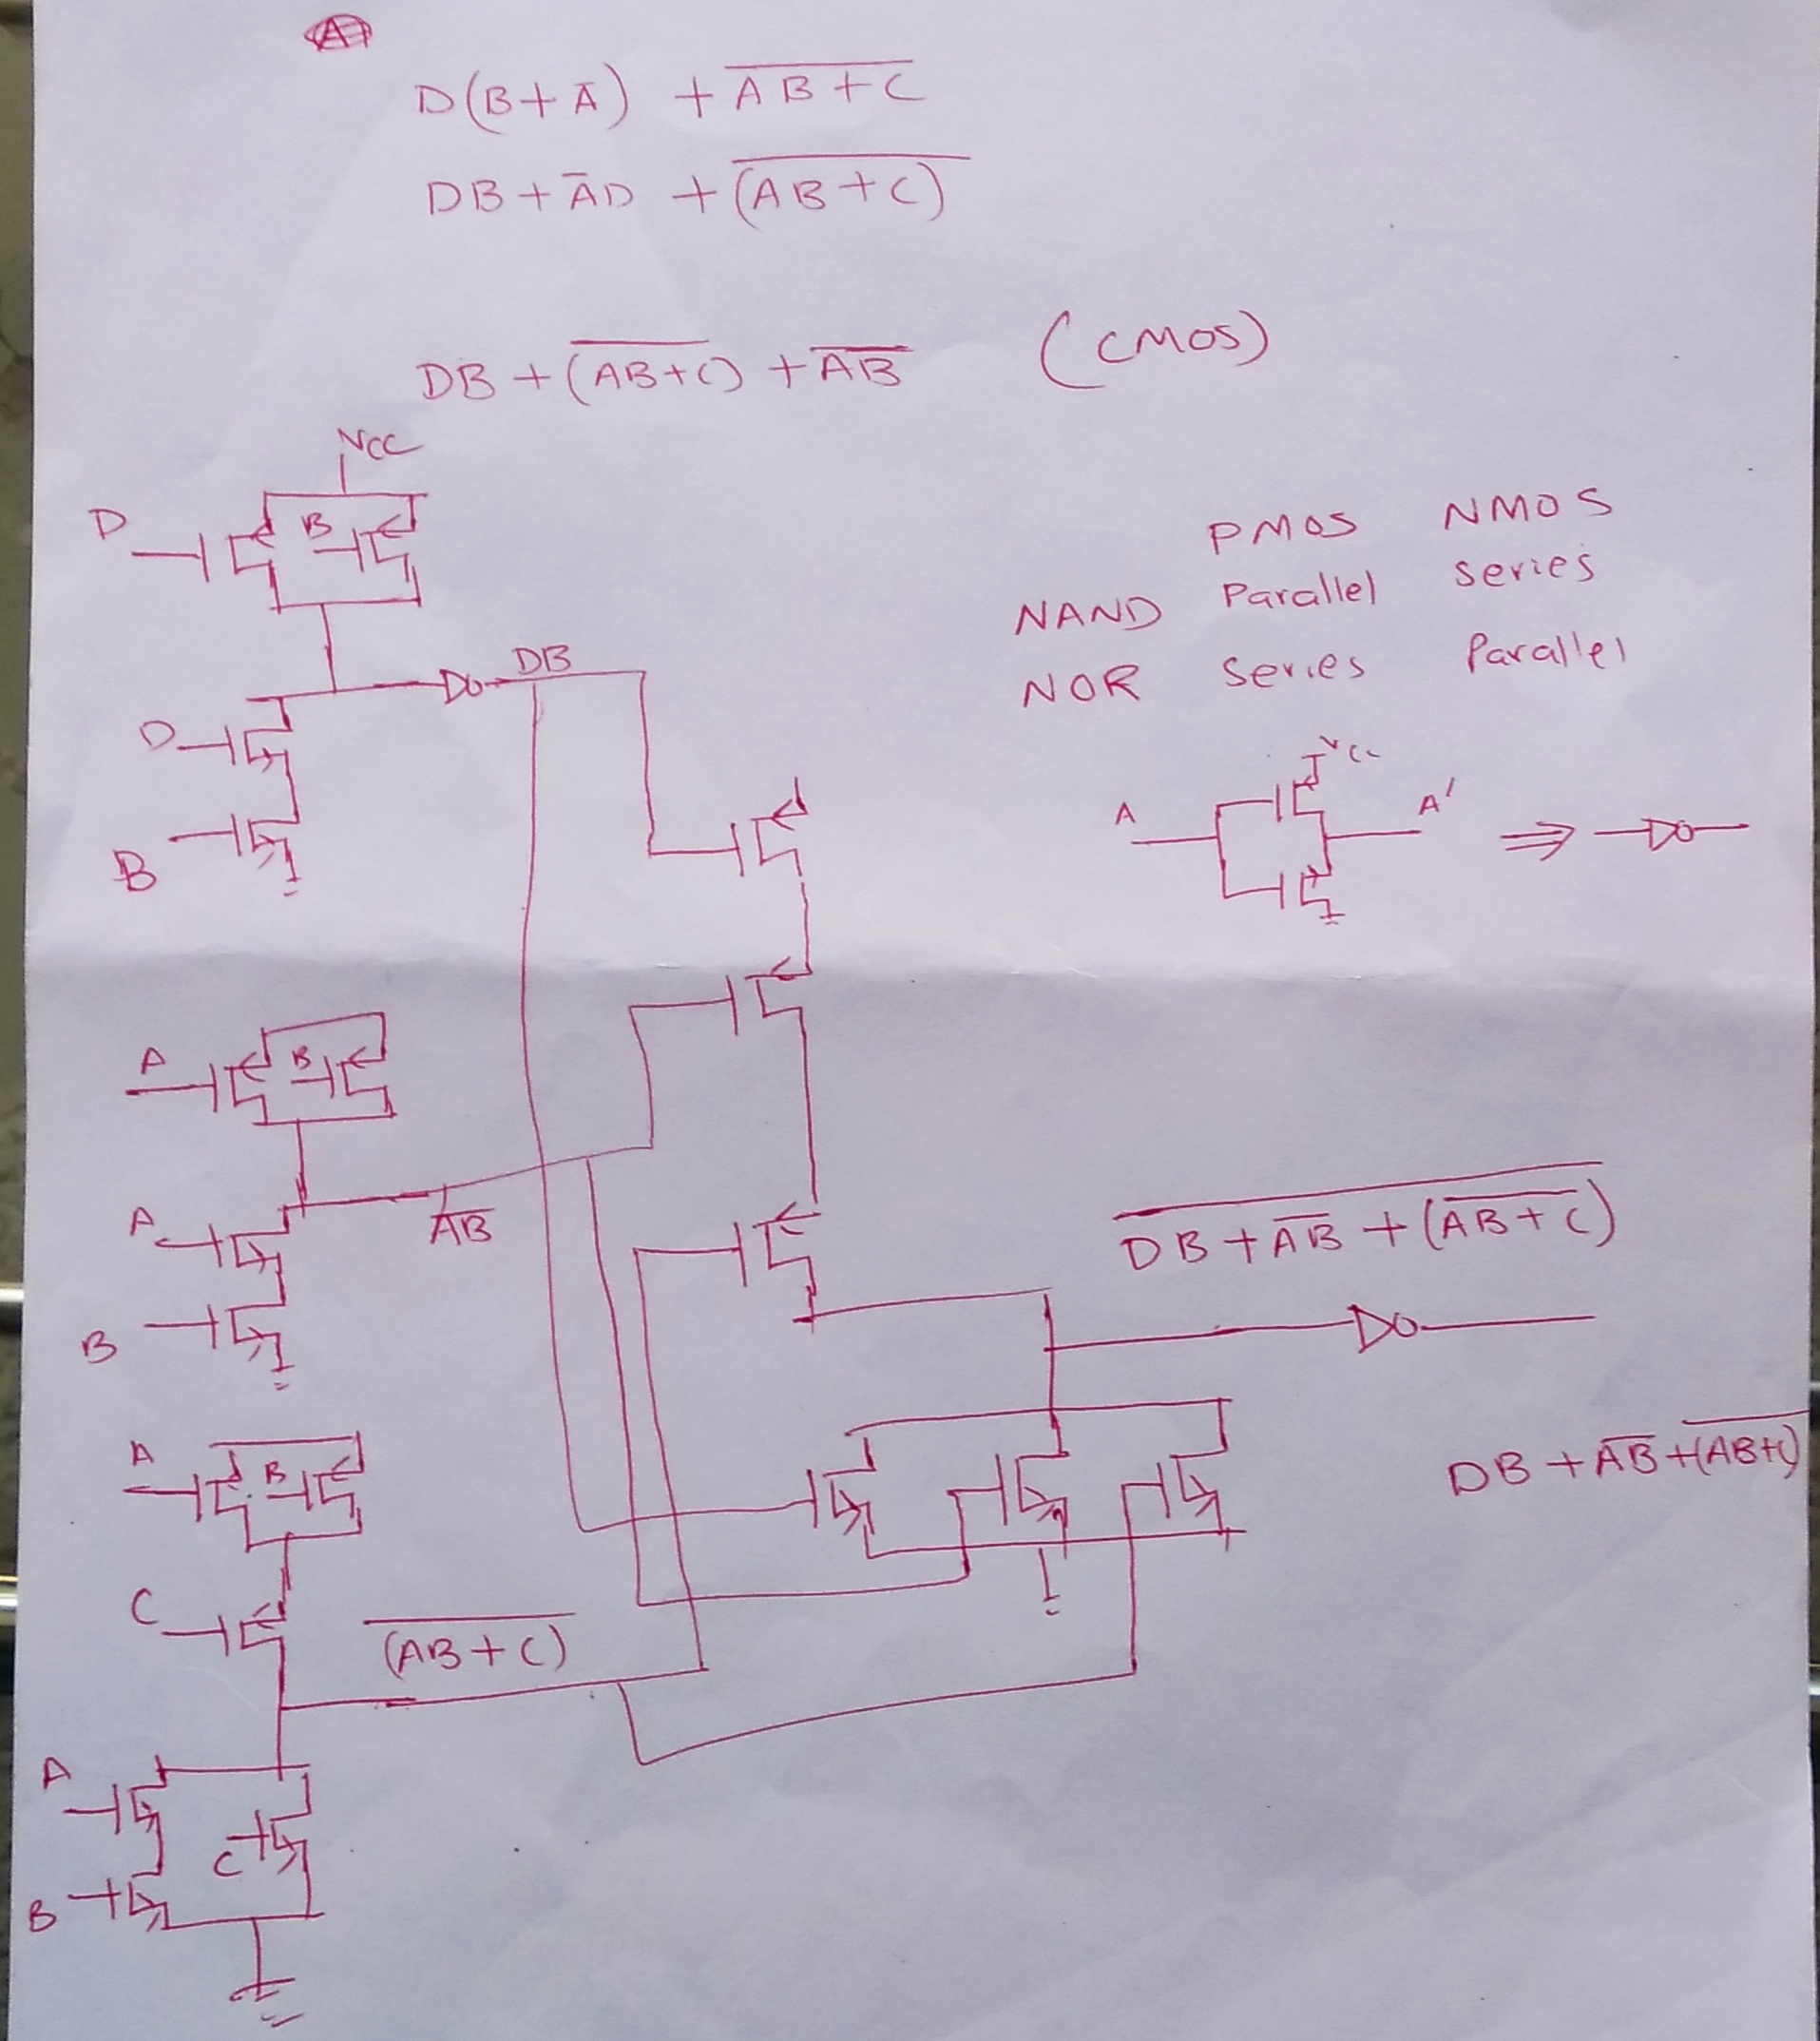 A
D(B+Ā) + \overline{AB+C}
DB + ĀD + \overline{(AB+C)}
DB + \overline{(AB+C)} + \overline{AB} (CMOS)
VCC
D B
PMOS NMOS
NAND Parallel series
NOR series Parallel
DB
D
B
VCC
A A'
A B
A
\overline{AB}
B
\overline{DB + \overline{AB} + (\overline{AB+C})}
A B
DB + \overline{AB} + \overline{(AB+C)}
C
\overline{(AB+C)}
A
C
B